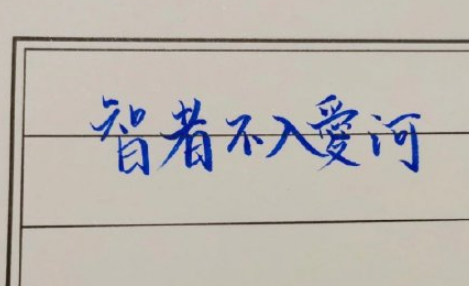 智者不入愛河